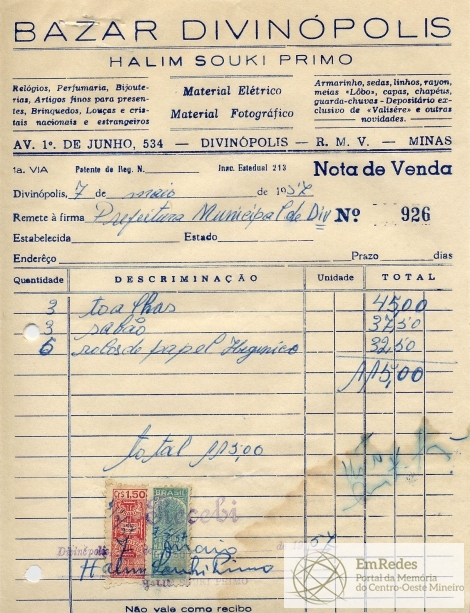 BAZAR DIVINÓPOLIS
HALIM SOUKI PRIMO
Relógios, Perfumaria, Bijouterias, Artigos finos para presentes, Brinquedos, Louças e cristais nacionais e estrangeiros
Material Elétrico
Material Fotográfico
Armarinho, sedas, linhos, rayon, meias «Lôbo», capas, chapéus, guarda-chuvas - Depositário exclusivo de «Valisére» e outras novidades.
AV. 1º. DE JUNHO, 534 — DIVINÓPOLIS — R. M. V. — MINAS
1a. VIA Patente de Reg. N. Insc. Estadual 213 Nota de Venda
Divinópolis, 7 de maio de 1957
Remete à firma Prefeitura Municipal de Div Nº 926
Estabelecida Estado
Enderêço Prazo dias
Quantidade DESCRIMINAÇÃO Unidade TOTAL
3 toalhas 45,00
3 sabão 37,50
5 rolos de papel Higienico 32,50
115,00
total 115,00
CR$ 1,50 BRASIL
Recebi
Divinópolis 7 maio 57
Halim Souki Primo
PRIMO
Não vale como recibo
EmRedes
Portal da Memória
do Centro-Oeste Mineiro